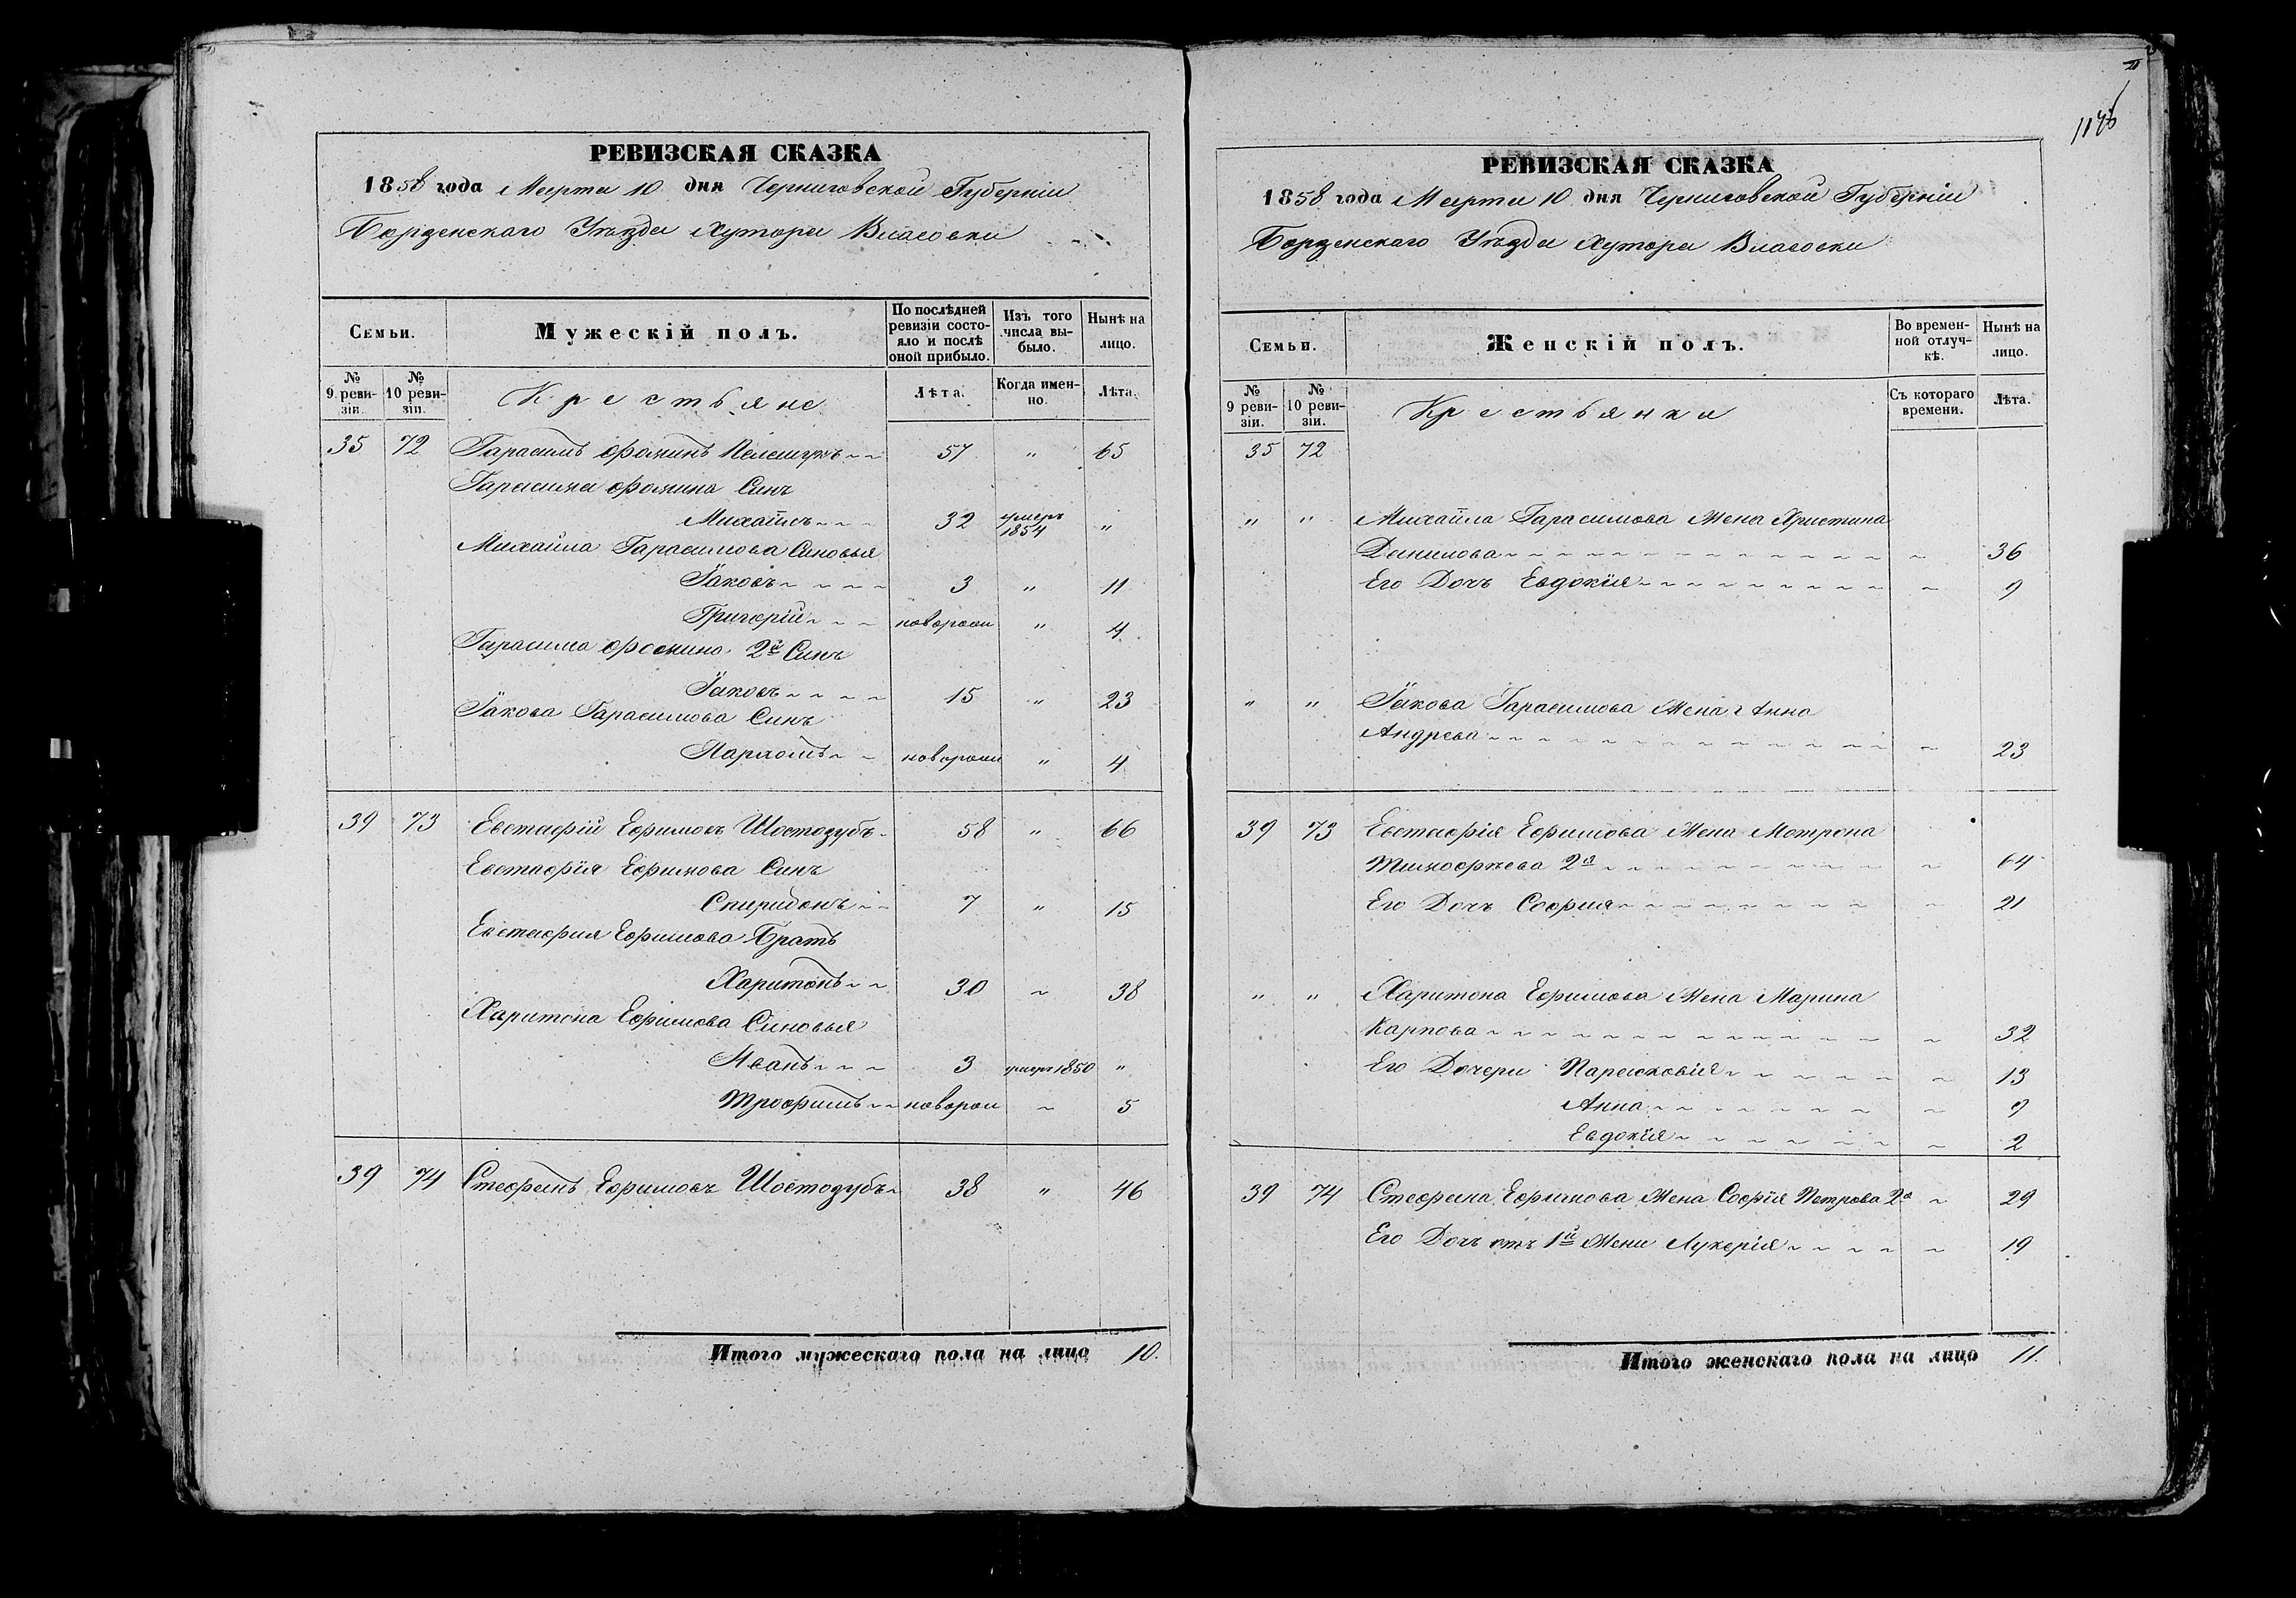 РЕВИЗСКАЯ СКАЗКА
1858 года Марта 10 дня Черниговской Губерніи
Борзенскаго Уѣзда Хутора Власовки
Семьи.
Мужескій полъ.
По послѣдней ревизіи состояло и послѣ оной прибыло.
Изъ того числа выбыло.
Нынѣ на лицо.
№ 9 ревизіи.
№ 10 ревизіи.
Крестьяне
Лѣта.
Когда именно.
Лѣта.
35 72 Гарасимъ Фоминъ 57 " 65
Гарасима Фомина Синъ
Михайло 32 умеръ 1854 "
Михайла Гарасимова Синовья
Яковъ 3 " 11
Григорій новорож " 4
Гарасима Фомина 2й Синъ
Яковъ 15 " 23
Якова Гарасимова Синъ
Пархомъ новорож " 4
39 73 Евстафій Ефимовъ Шостозубъ 58 " 66
Евстафія Ефимова Синъ
Спиридонъ 7 " 15
Евстафия Ефимова Братъ
Харитонъ 30 ~ 38
Харитона Ефимова Синовья
Иванъ 3 умеръ 1850 "
Трофимъ новорож ~ 5
39 74 Стефанъ Ефимовъ Шостозубъ 38 " 46
Итого мужескаго пола на лицо 10.
РЕВИЗСКАЯ СКАЗКА
1858 года Марта 10 дня Черниговской Губерніи
Борзенскаго Уѣзда Хутора Власовки
Семьи.
Женскій полъ.
Во временной отлучкѣ.
Нынѣ на лицо.
№ 9 ревизіи.
№ 10 ревизіи.
Крестьянки
Съ котораго времени.
Лѣта.
35 72
" " Михайла Гарасимова Жена Христина
Данилова ~ 36
Его Дочь Евдокія ~ 9
" " Якова Гарасимова Жена Анна
Андрева ~ 23
39 73 Евстафія Ефимова Жена Мотрона
Тимофѣева 2я ~ 64
Его Дочь София ~ 21
" " Харитона Ефимова Жена Марина
Карпова ~ 32
Его Дочери Парасковія ~ 13
Анна ~ 9
Евдокія ~ 2
39 74 Стефана Ефимова Жена Софія Петрова 2я ~ 29
Его Дочь отъ 1й Жени Лукерія ~ 19
Итого женскаго пола на лицо 11.